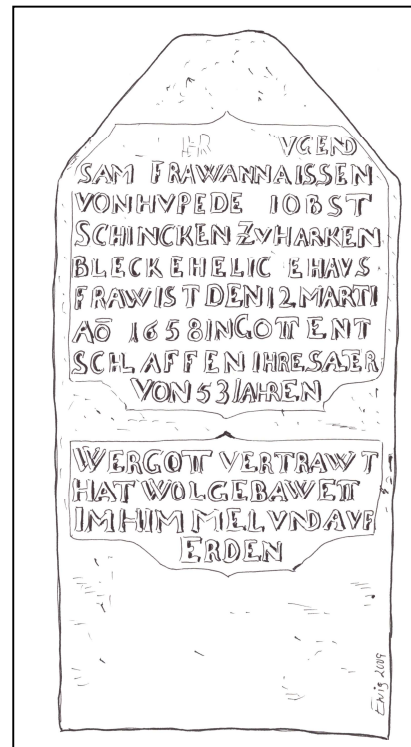 ER VGEND
SAM FRAW ANNA ISSEN
VON HVPEDE IOBST
SCHINCKEN ZV HARKEN
BLECK EHELIC E HAVS
FRAW IST DEN 12 MARTI
AŌ 1658 IN GOTT ENT
SCHLAFFEN IHRES AER
VON 53 IAHREN
WER GOTT VERTRAWT
HAT WOL GEBAWETT
IM HIMMEL VND AVF
ERDEN
Enig 2009